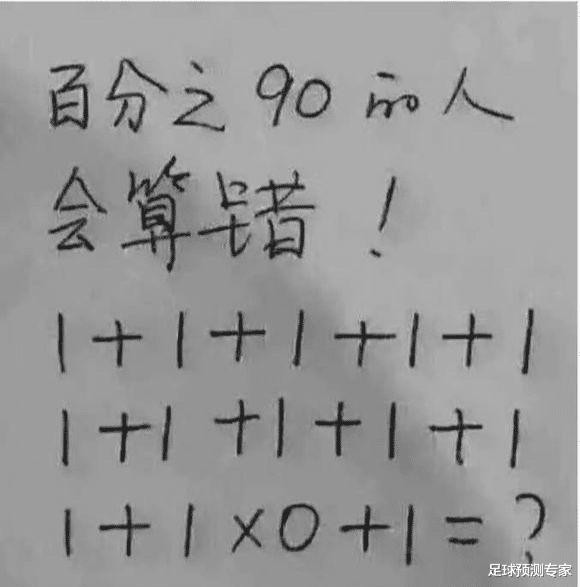 百分之90的人
会算错！
1+1+1+1+1
1+1+1+1+1
1+1×0+1=?
足球预测专家